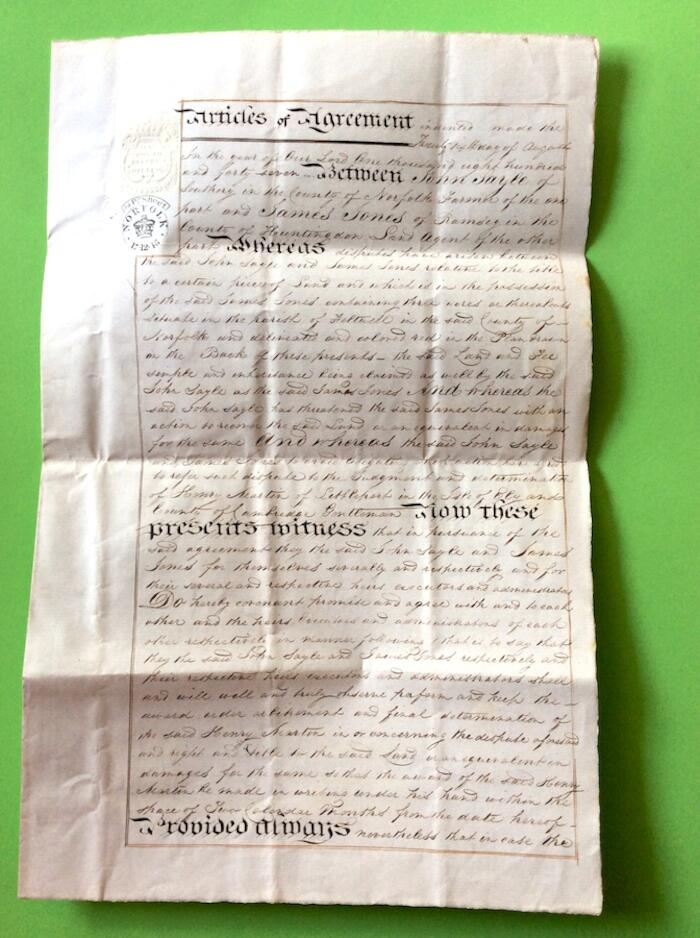 Articles of Agreement indented made the
Twenty day of August
In the year of Our Lord One thousand eight hundred
and forty seven Between John Sayle of
Southery in the County of Norfolk Farmer of the one
part and James Jones of Ramsey in the
County of Huntingdon Land Agent of the other
part Whereas disputes have arisen between
the said John Sayle and James Jones relative to the title
to a certain piece of Land and which is in the possession
of the said James Jones containing three acres or thereabouts
situate in the parish of Feltwell in the said County of
Norfolk and delineated and colored red in the Plan drawn
on the Back of these presents – the said Land and Fee
simple and inheritance being claimed as well by the said
John Sayle as the said James Jones And whereas the
said John Sayle has threatened the said James Jones with an
action to recover the said Land or an equivalent in damages
for the same And whereas the said John Sayle
and James Jones to avoid litigation have agreed
to refer such dispute to the Judgment and determination
of Henry Martin of Littleport in the Isle of Ely and
County of Cambridge Gentleman Now these
presents witness that in pursuance of the
said agreement they the said John Sayle and James
Jones for themselves severally and respectively and for
their several and respective heirs executors and administrators
Do hereby covenant promise and agree with and to each
other and the heirs executors and administrators of each
other respectively in manner following (that is to say) that
they the said John Sayle and James Jones respectively and
their respective heirs executors and administrators shall
and will well and truly observe perform and keep the
award order arbitrament and final determination of
the said Henry Martin in or concerning the dispute aforesaid
and right and title to the said Land or an equivalent in
damages for the same so that the award of the said Henry
Martin be made in writing under his hand within the
space of Two Calendar Months from the date hereof –
Provided always nevertheless that in case the
NORFOLK